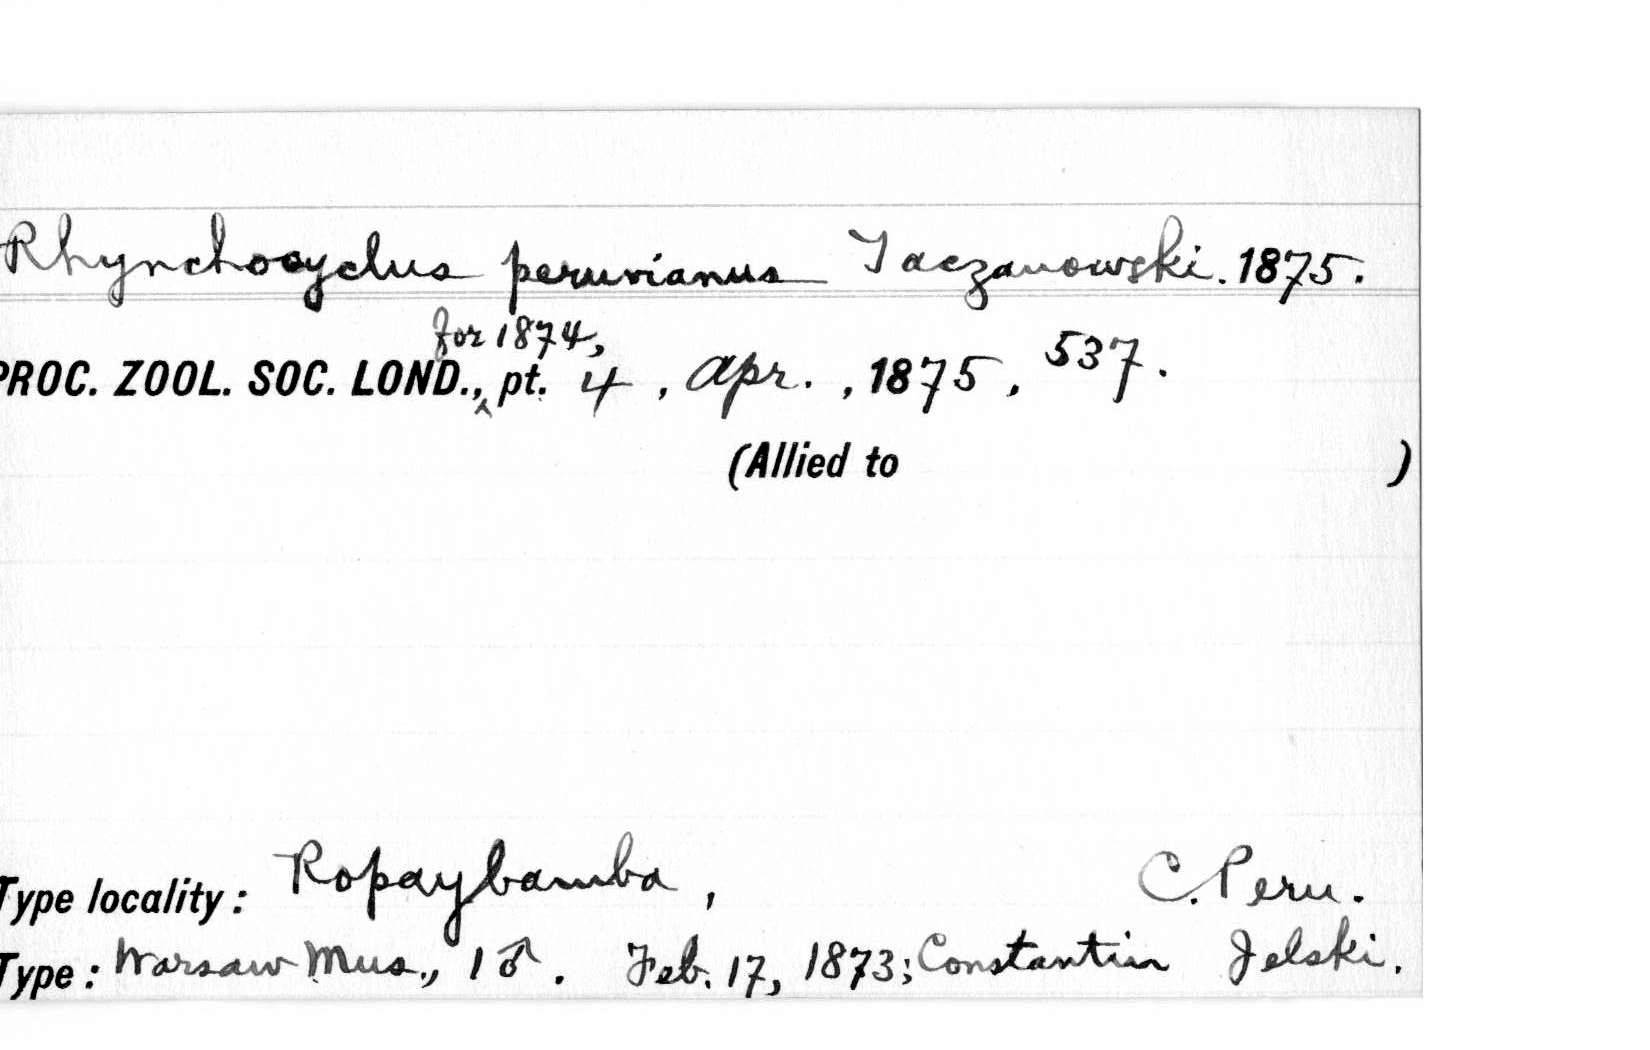 Rhynchocyclus peruvianus Taczanowski. 1875.
for 1874,
PROC. ZOOL. SOC. LOND., pt. 4, Apr., 1875, 537.
(Allied to )
Type locality: Ropaybamba, C. Peru.
Type: Warsaw Mus., 1♂. Feb. 17, 1873; Constantin Jelski.